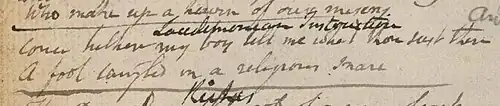 Who make up a heaven of our misery
Lacedemonian Instruction
Come hither my boy tell me what thou seest there
A fool tangled in a religious snare
Riches